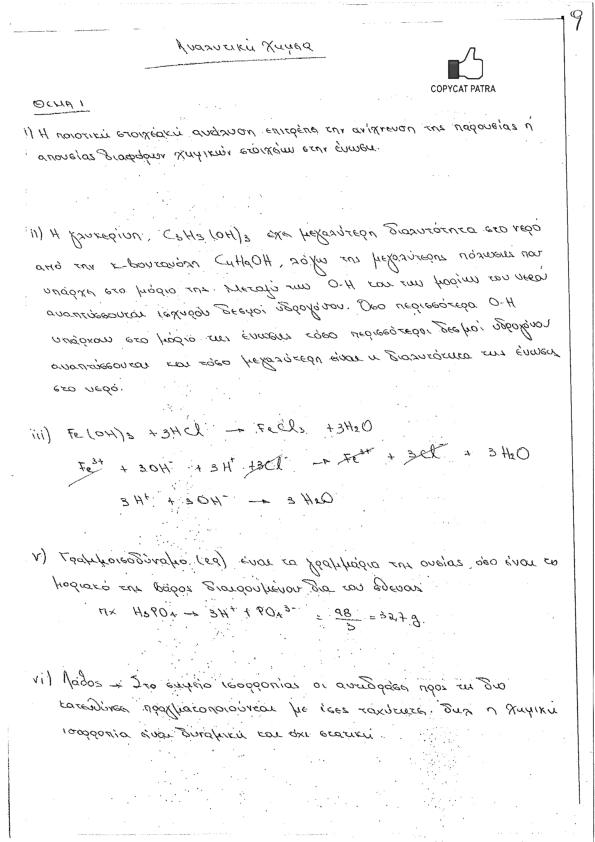 9
Αναλυτική Χημεία
COPYCAT PATRA
ΘΕΜΑ 1
i) Η ποιοτική στοιχειακή ανάλυση επιτρέπει την ανίχνευση της παρουσίας ή
απουσίας διαφόρων χημικών στοιχείων στην ένωση.
ii) Η γλυκερίνη, C3H5(OH)3 έχει μεγαλύτερη διαλυτότητα στο νερό
από την κ-βουτανόλη C4H9OH, λόγω της μεγαλύτερης πόλωσης που
υπάρχει στο μόριο της. Μεταξύ των Ο-Η και των μορίων του νερού
αναπτύσσονται ισχυροί δεσμοί υδρογόνου. Όσο περισσότερα Ο-Η
υπάρχουν στο μόριο της ένωσης τόσο περισσότεροι δεσμοί υδρογόνου
αναπτύσσονται και τόσο μεγαλύτερη είναι η διαλυτότητα της ένωσης
στο νερό.
iii) Fe(OH)3 + 3HCl → FeCl3 + 3H2O
Fe3+ + 3OH- + 3H+ + 3Cl- → Fe3+ + 3Cl- + 3H2O
3H+ + 3OH- → 3H2O
v) Γραμμοισοδύναμο (eq) είναι τα γραμμάρια της ουσίας, όσο είναι το
μοριακό της βάρος διαιρουμένου δια του σθένους
πχ H3PO4 → 3H+ + PO4 3- = 98/3 = 32,7 g.
vi) Λάθος → Στο σημείο ισορροπίας οι αντιδράση προς τις δυο
κατευθύνση πραγματοποιούνται με ίσες ταχύτητες. δηλ η χημική
ισορροπία είναι δυναμική και όχι στατική.